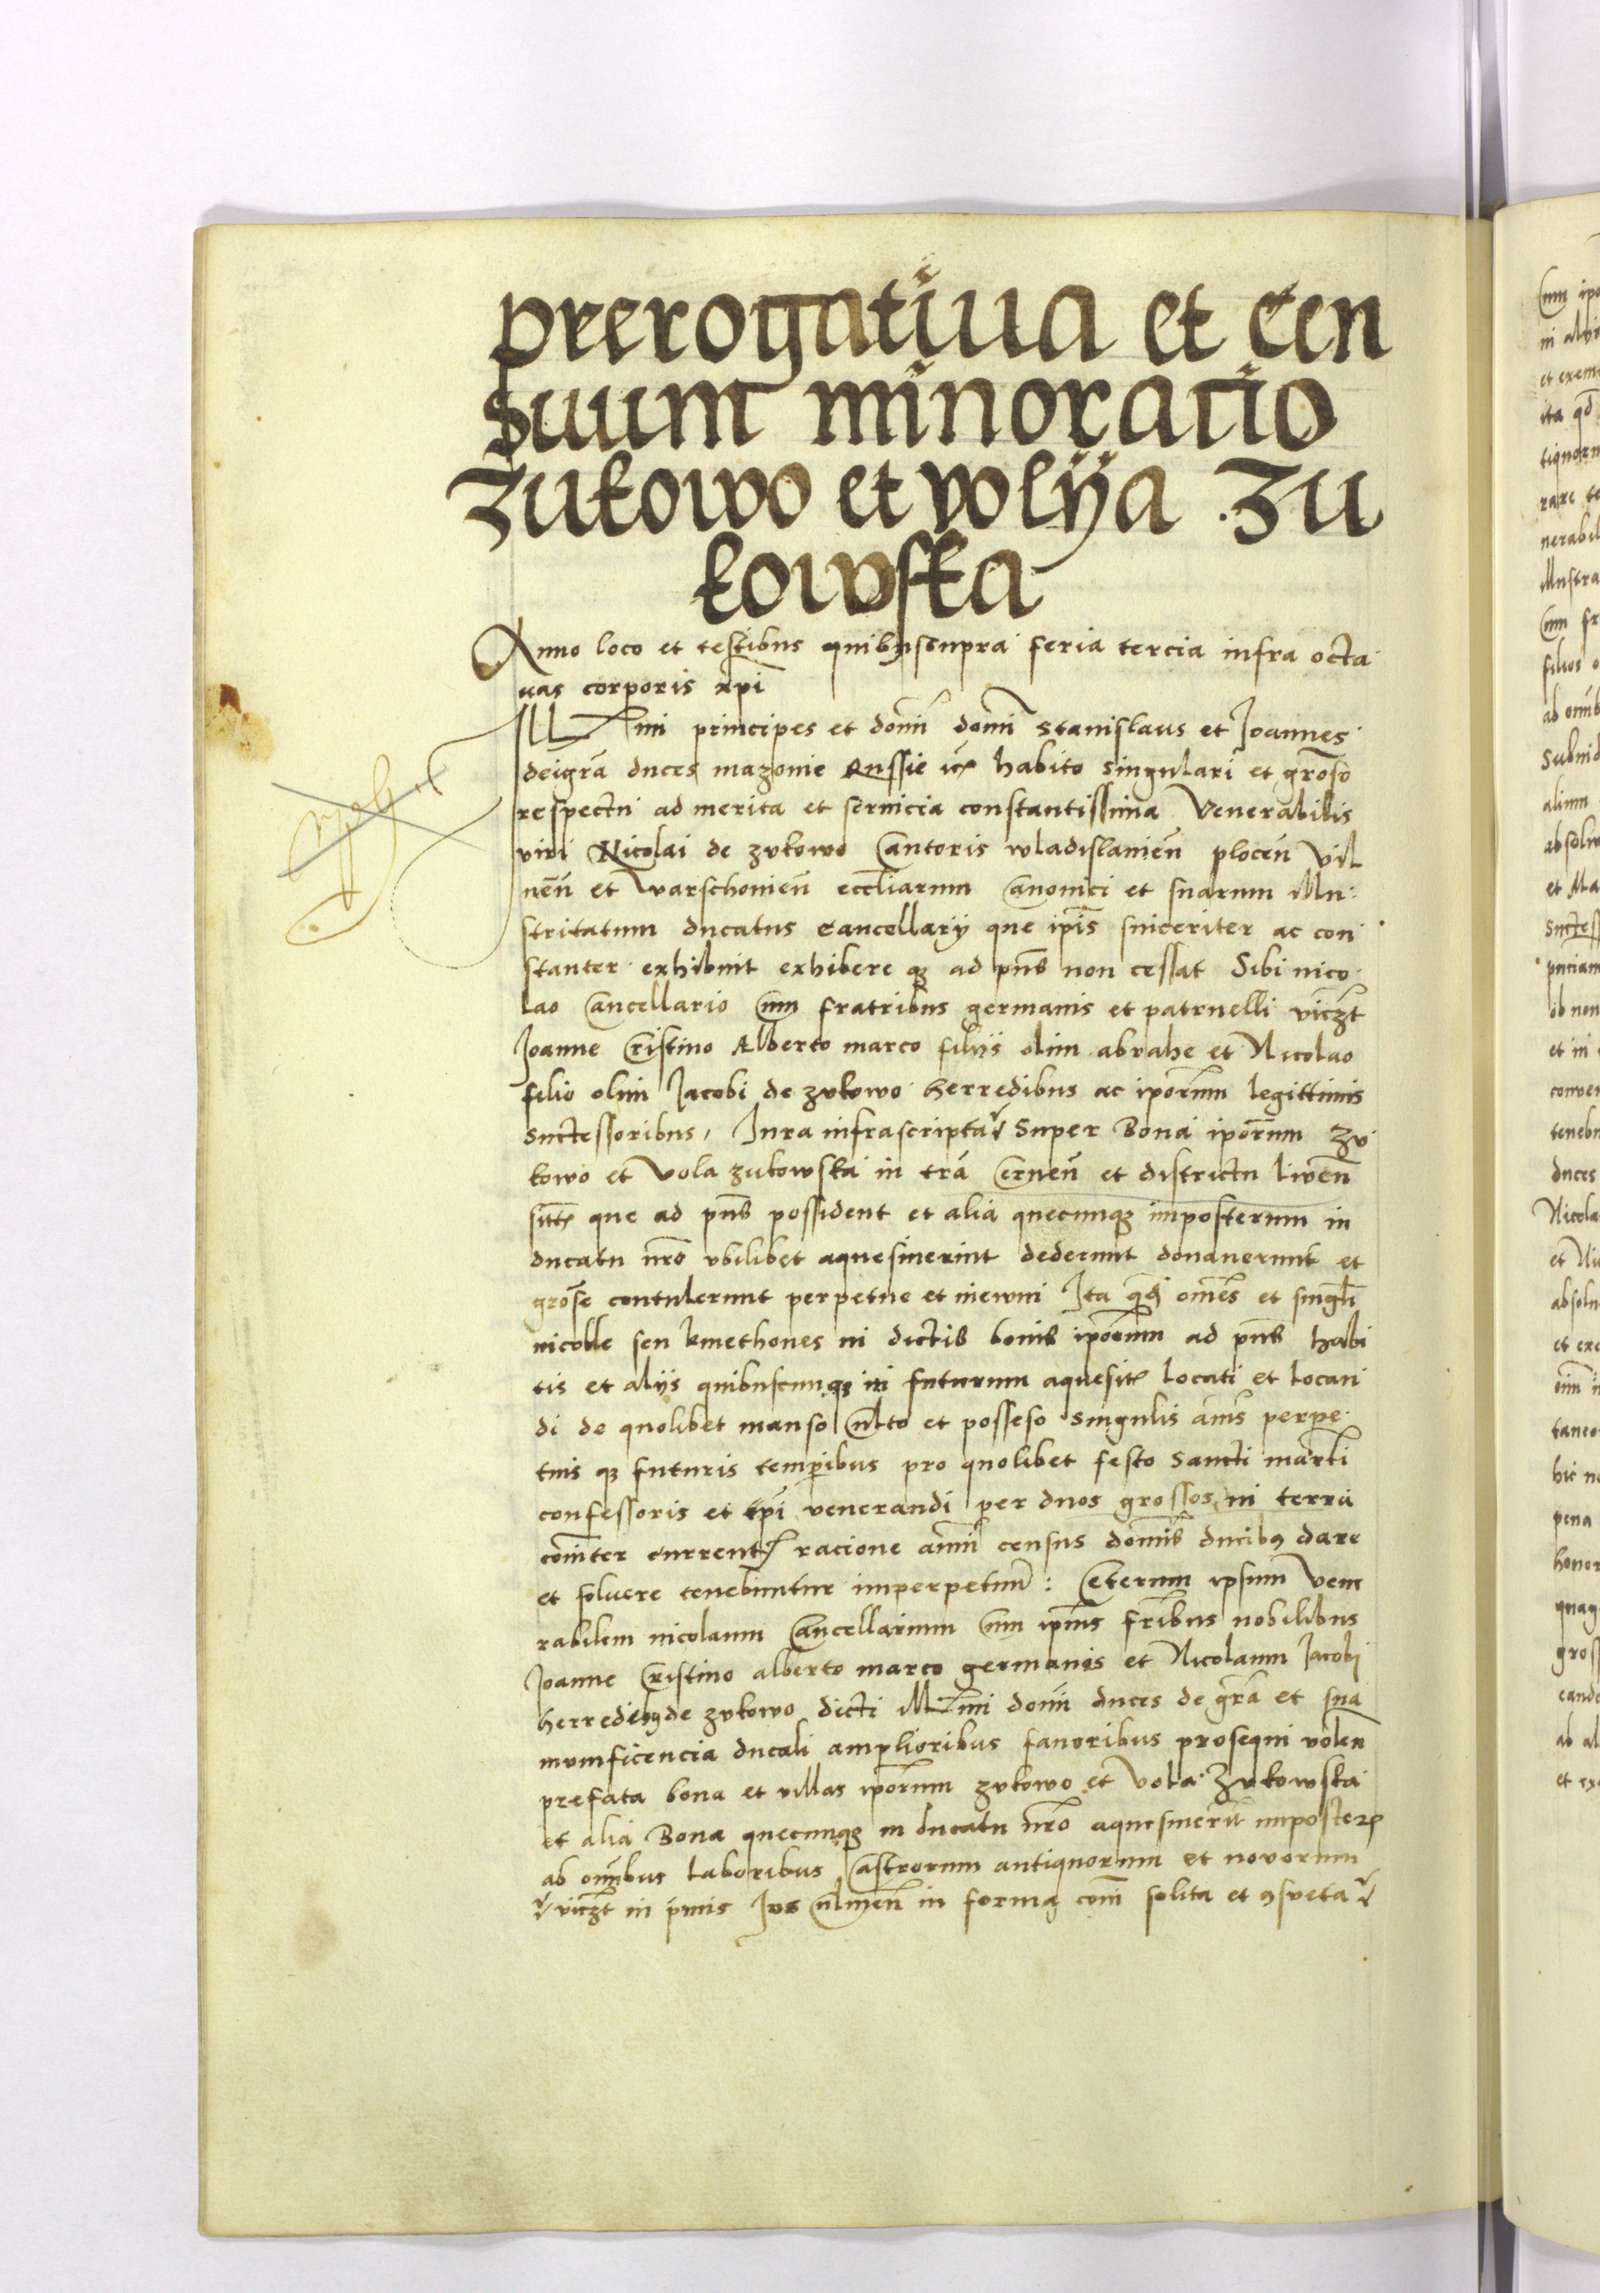 prerogatiua et cen
suum minoratio
zukowo et wolÿa zu
kowska
Anno loco et testibus quibus supra feria tercia infra octa
uas corporis xpi
Illmi principes et domi domi Stanislaus et Joannes
deigra duces mazouie Russie etc habito singulari et groso
respectu ad merita et seruicia constantissima Venerabilis
viri Nicolai de zukowo Cantoris wladislauien plocen Vil
nen et Warschouien eccliarum Canonici et suarum Illu
stritatum ducatus Cancellarÿ que ipis sinceriter ac con
stanter exhibuit exhibere qz ad pns non cessat Sibi nico
lao Cancellario Cum fratribus germanis et patruelli viczt
Joanne Cristino Alberto marco filÿs olim abrahe et Nicolao
filio olim Jacobi de zukowo herredibus ac iporum legittimis
Suctessoribus, Jura infrascripta Super Bona iporum zu
kowo et Vola zukowska in tra Cernen et districtu liwen
sitt que ad pns possident et alia quecunqz imposterum in
ducatu nro vbilibet aquesiuerint dederunt donauerunt et
grose contulerunt perpetue et in ewm Ita qd omes et singli
incolle seu kmethones in dictis bonis iporum ad pns habi
tis et alÿs quibuscunqz in futurum aquesit locati et locan
di de quolibet manso Culto et possesso Singulis anis perpe
tuis qz futuris temporibus pro quolibet festo Sancti marti
confessoris et epi venerandi per duos grossos in terra
comiter currentes racione anui census domis ducibus dare
et soluere tenebuntur imperpetuu : Ceterum ipsum Vene
rabilem nicolaum Cancellarium Cum ipius fribus nobilibus
Joanne Cristino alberto marco germanis et Nicolaum Jacobi
herredibus de zukowo dicti Illmi domi duces de gra et sua
munificencia ducali amplioribus fauoribus prosequi volen
prefata bona et villas iporum zukowo et Vola Zukowska
et alia Bona quecunqz in ducatu nro aquesiuerit imposter
ab omibus laboribus Castrorum antiquorum et nouorum
viczt in pmis Jus Culmen in forma comi solita et 9sueta